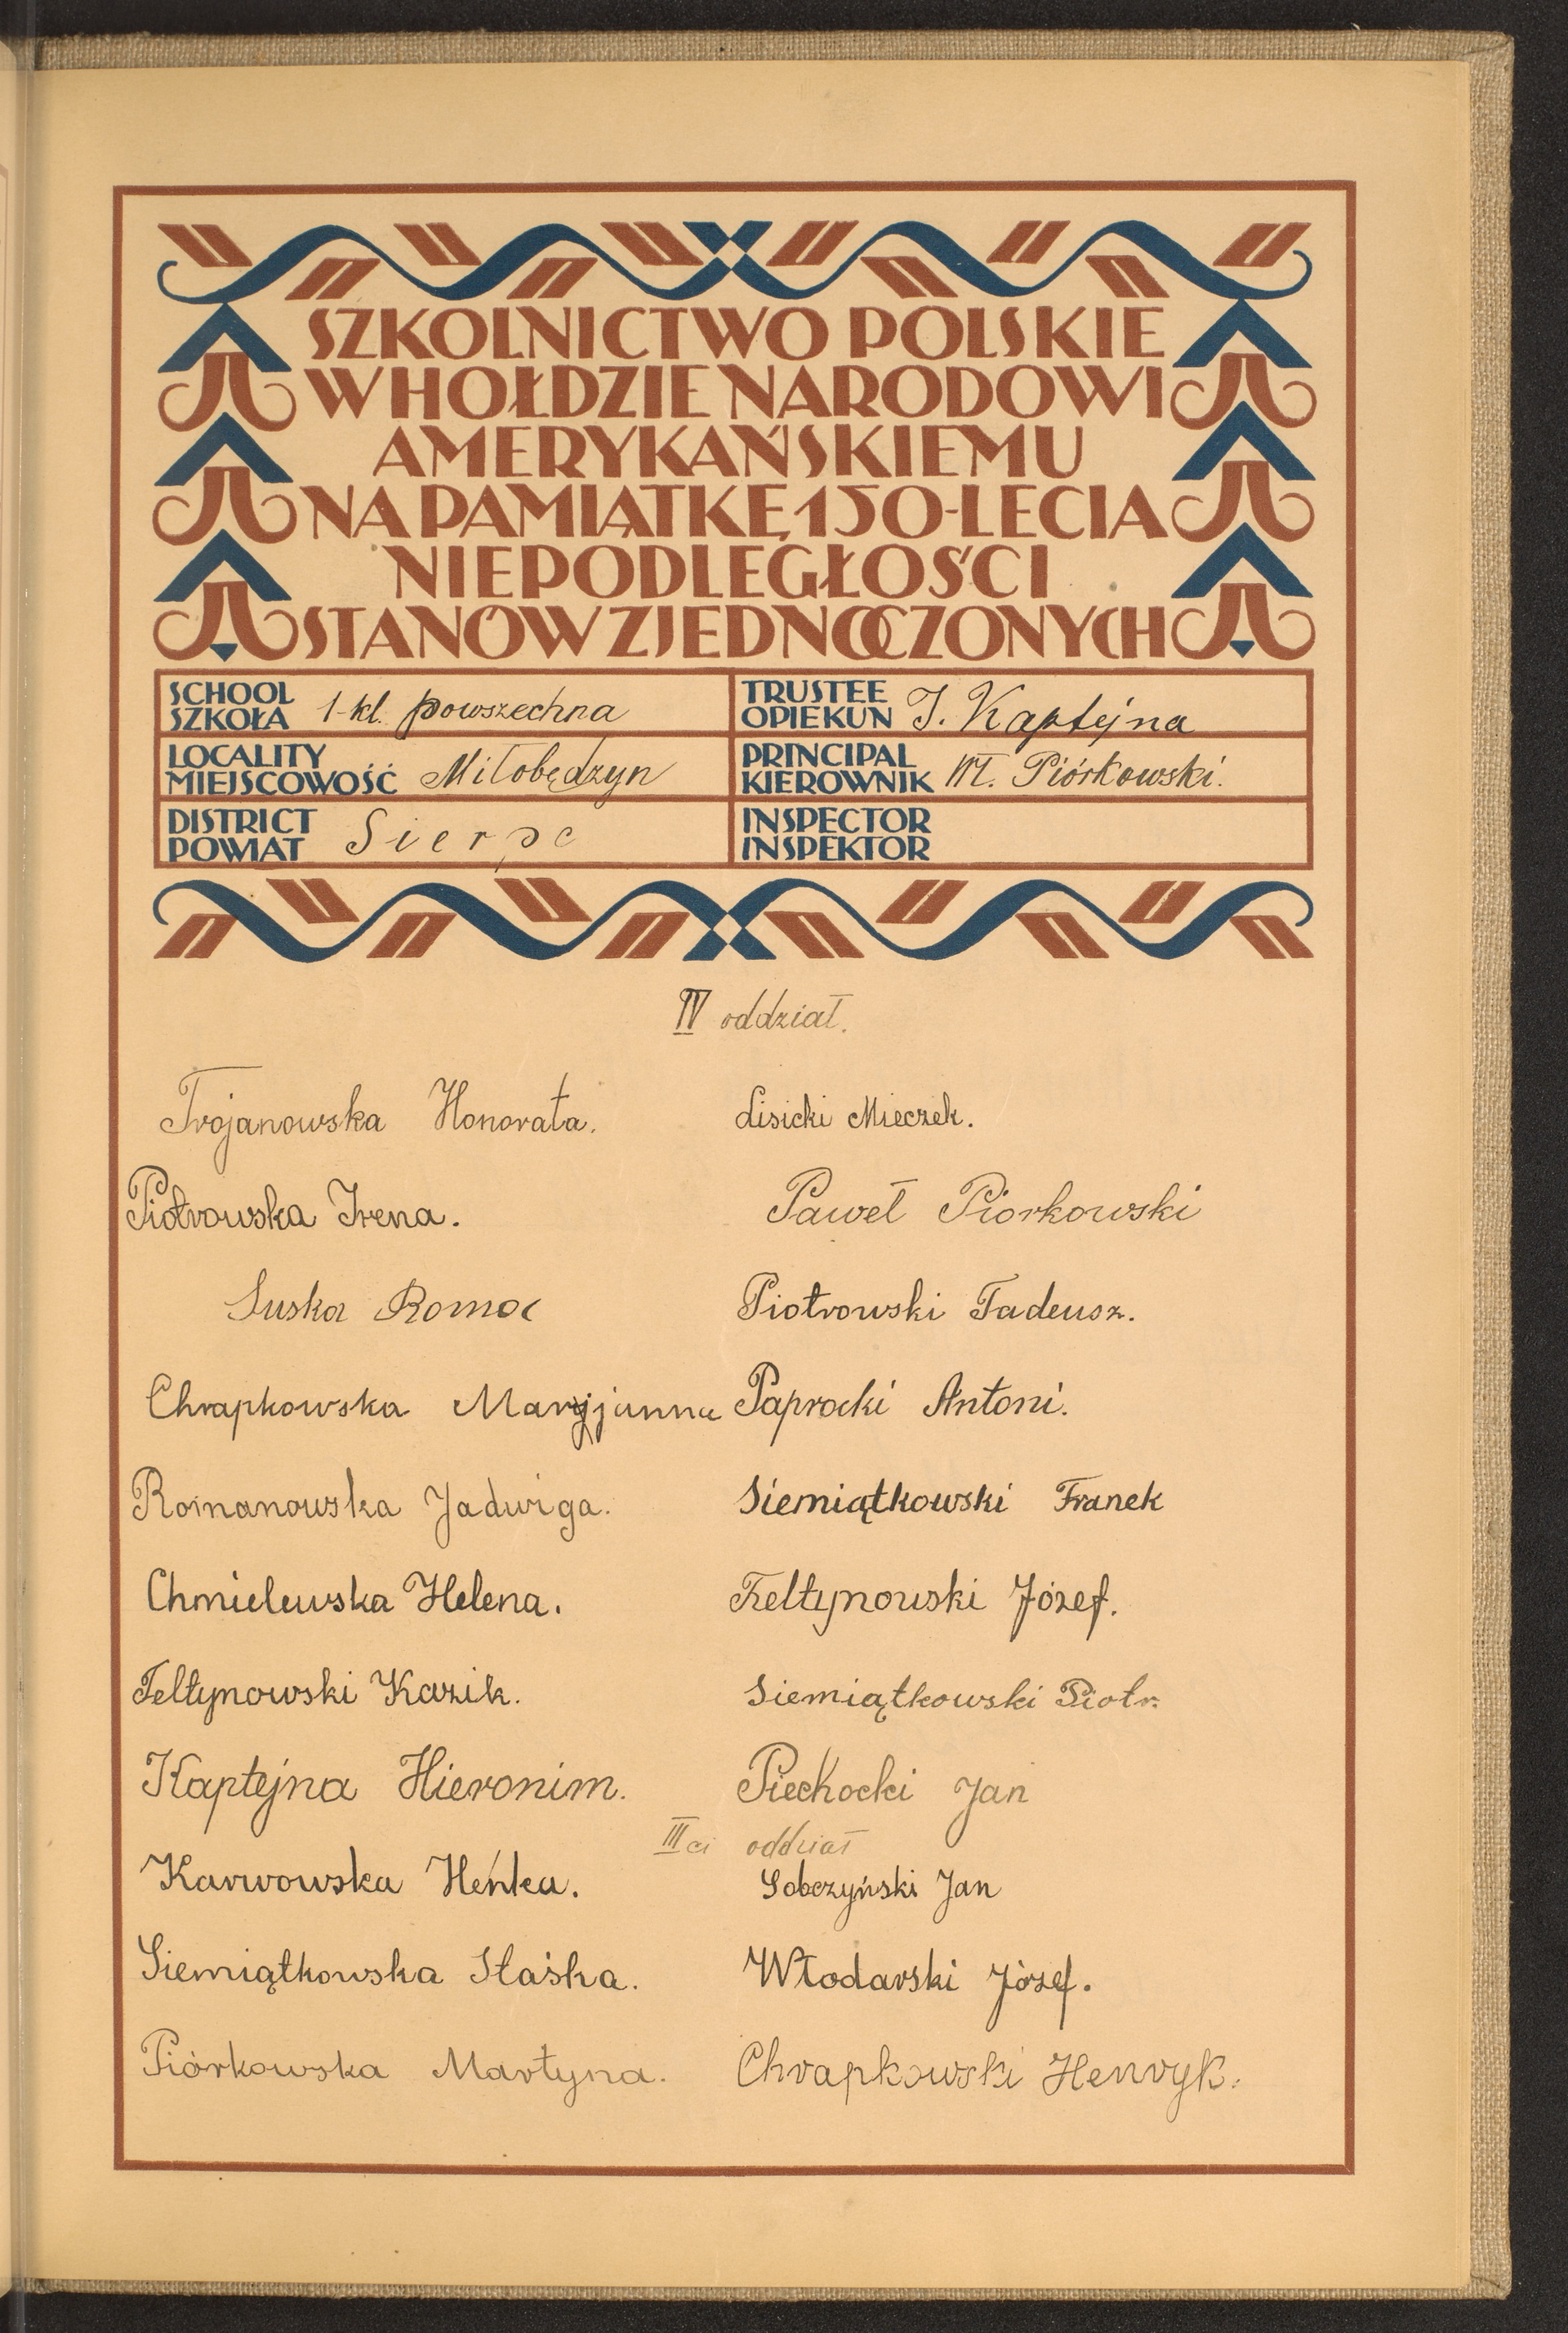 SZKOLNICTWO POLSKIE
W HOŁDZIE NARODOWI
AMERYKAŃSKIEMU
NA PAMIĄTKĘ 150-LECIA
NIEPODLEGŁOŚCI
STANÓW ZJEDNOCZONYCH
SCHOOL
SZKOŁA 1-kl. powszechna
TRUSTEE
OPIEKUN J. Kaptejna
LOCALITY
MIEJSCOWOŚĆ Miłobędzyn
PRINCIPAL
KIEROWNIK Wł. Piórkowski.
DISTRICT
POWIAT Sierpc
INSPECTOR
INSPEKTOR
IV oddział.
Trojanowska Honorata.
Piotrowska Irena.
Suska Roma
Chrapkowska Maryjanna
Romanowska Jadwiga.
Chmielewska Helena.
Feltynowski Kazik.
Kaptejna Hieronim.
Lisicki Mieczek.
Paweł Piorkowski
Piotrowski Tadeusz.
Paprocki Antoni.
Siemiątkowski Franek
Feltynowski Józef.
Siemiątkowski Piotr.
Piechocki Jan
III ci oddział
Karwowska Heńka.
Siemiątkowska Staśka.
Piórkowska Martyna.
Sobczyński Jan
Włodarski Józef.
Chrapkowski Henryk.